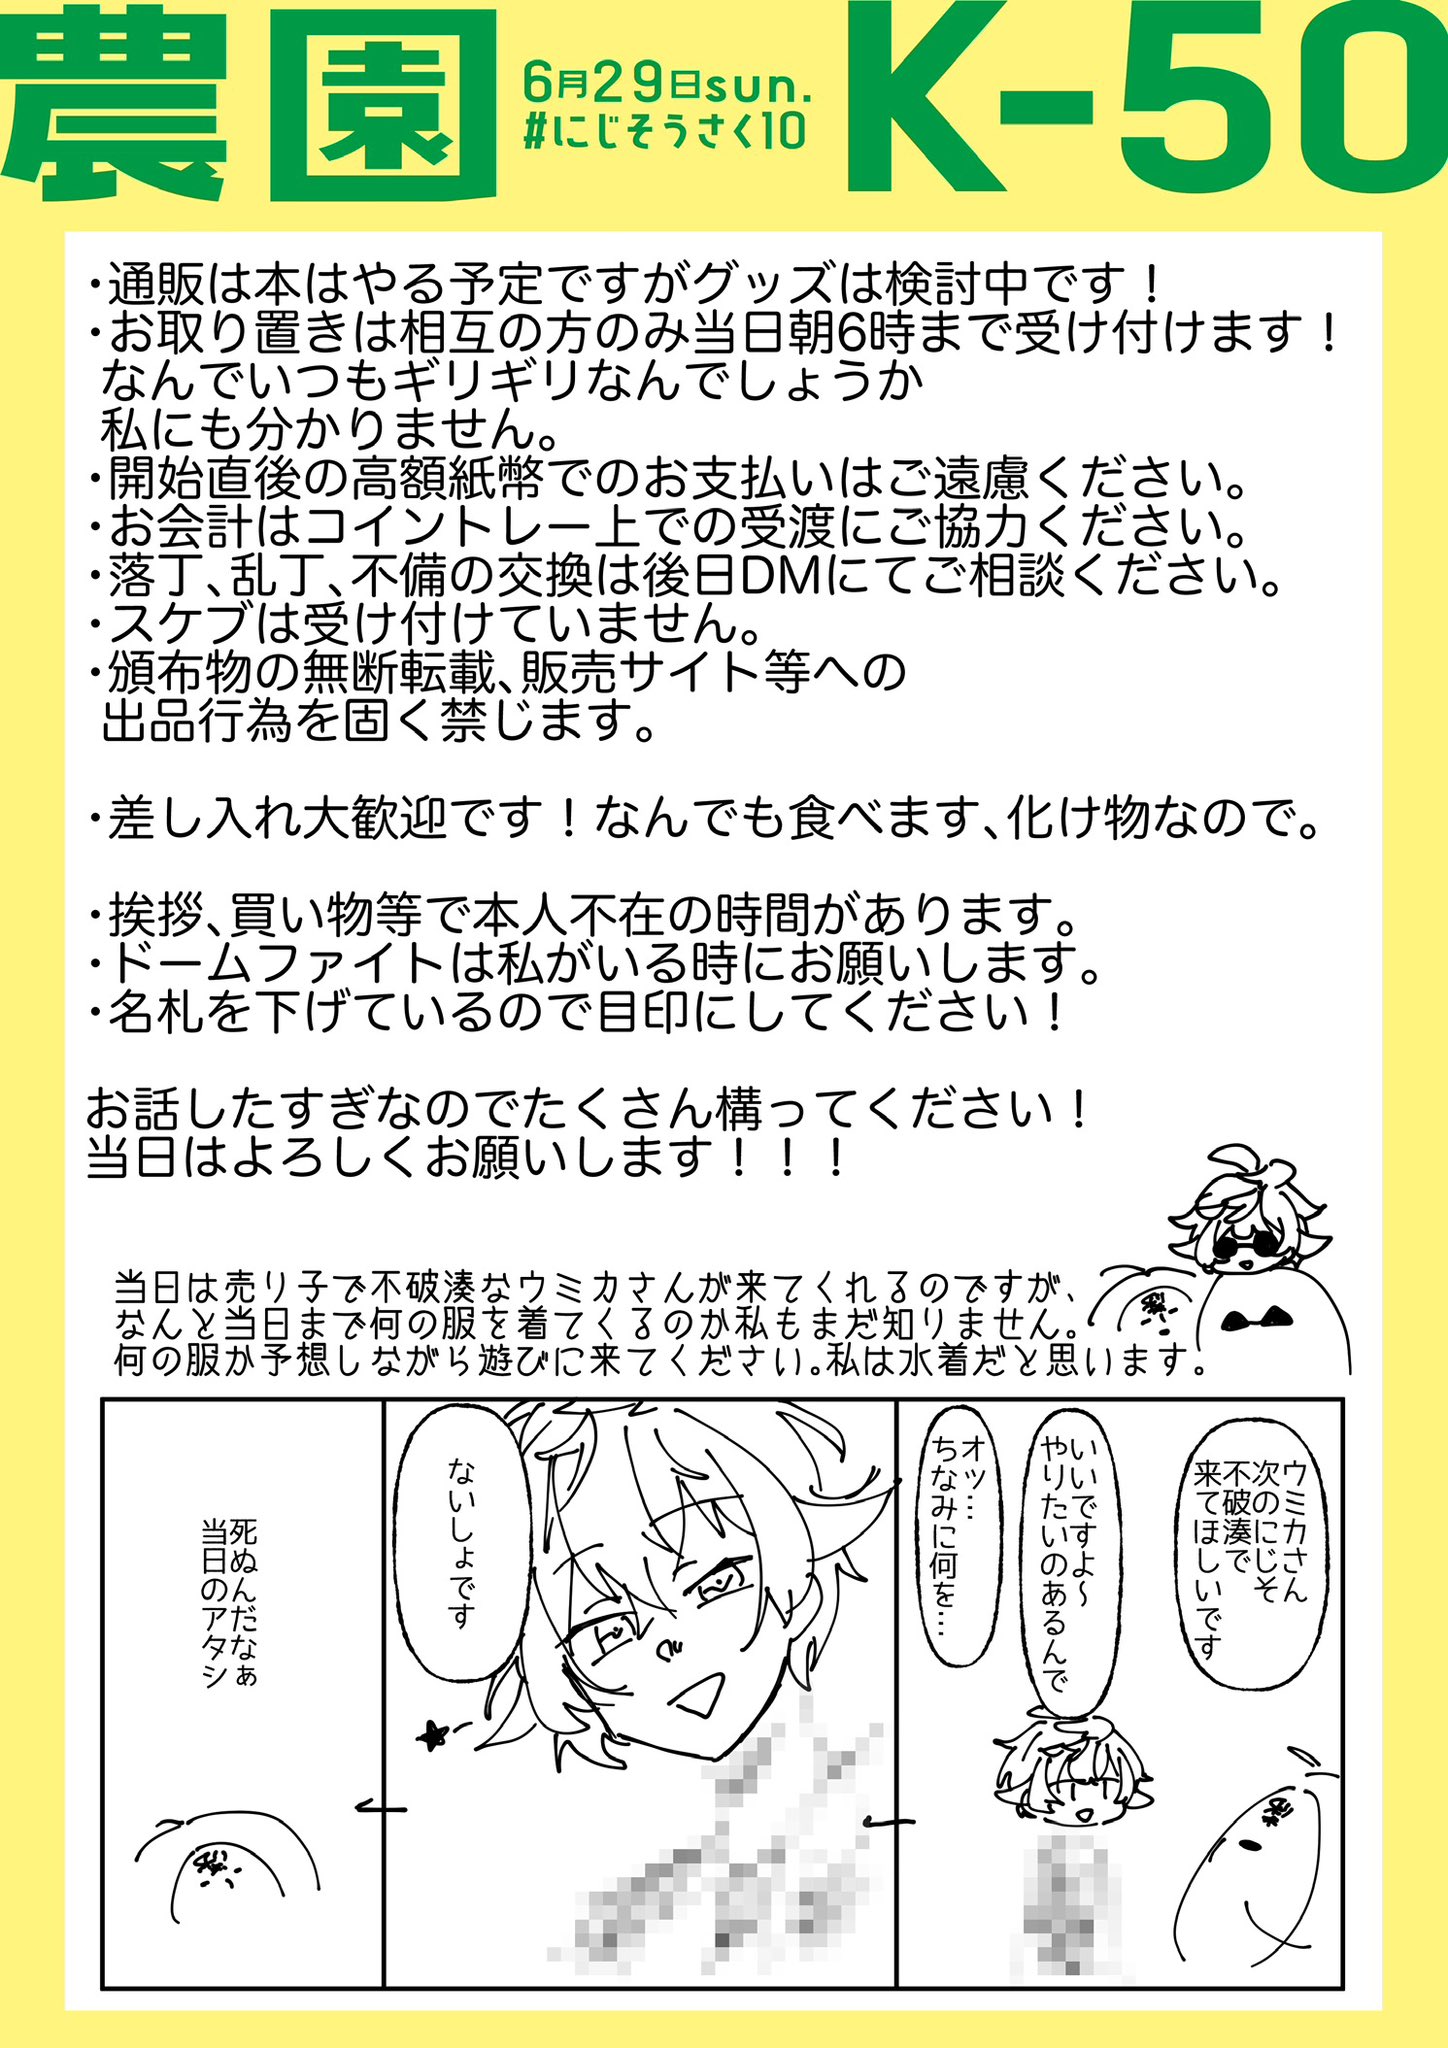 農園
6月29日sun.
#にじそうさく10
K-50
・通販は本はやる予定ですがグッズは検討中です！
・お取り置きは相互の方のみ当日朝6時まで受け付けます！
なんでいつもギリギリなんでしょうか
私にも分かりません。
・開始直後の高額紙幣でのお支払いはご遠慮ください。
・お会計はコイントレー上での受渡にご協力ください。
・落丁、乱丁、不備の交換は後日DMにてご相談ください。
・スケブは受け付けていません。
・頒布物の無断転載、販売サイト等への
出品行為を固く禁じます。
・差し入れ大歓迎です！なんでも食べます、化け物なので。
・挨拶、買い物等で本人不在の時間があります。
・ドームファイトは私がいる時にお願いします。
・名札を下げているので目印にしてください！
お話したすぎなのでたくさん構ってください！
当日はよろしくお願いします！！！
当日は売り子で不破湊なウミカさんが来てくれるのですが、
なんと当日まで何の服を着てくるのか私もまだ知りません。
何の服か予想しながら遊びに来てください。私は水着だと思います。
ウミカさん
次のにじそ
不破湊で
来てほしいです
いいですよ〜
やりたいのあるんで
オッ…
ちなみに何を…
ないしょです
死ぬんだなぁ
当日のアタシ